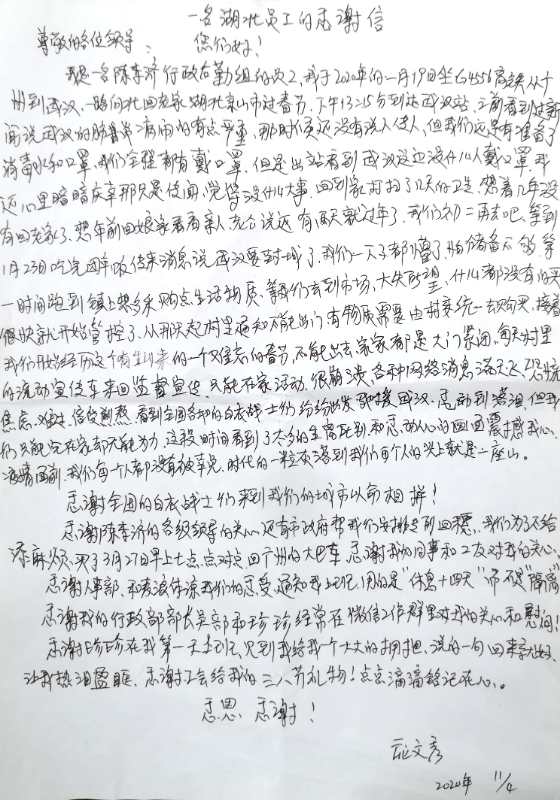 一名湖北员工的感谢信
尊敬的各位领导：
您们好！
我是一名陈李济行政后勤组的员工，我于2020年的一月19日坐G4556高铁从广
州到武汉，一路向北回老家湖北京山市过春节。下午13:15分到达武汉站，之前看到过新
闻说武汉的肺炎病闹的有点严重，那时候还没有说人传人，但我们还是有准备了
消毒水和口罩，我们全程都有戴口罩，但是出站看到武汉这边没什么人戴口罩，我
还心里暗暗庆幸那只是传闻，觉得没什么大事。回到家打扫了几天的卫生，想着几年没
有回老家了，想年前回娘家看看亲人，先公说还有两天就过年了，我们初二再去吧，等到
1月23日吃完团年饭传来消息说武汉要封城了，我们一下子都懵了，怕储备不够，第
一时间跑到镇上想多采购点生活物质，等我们去到市场，大失所望，什么都没有的买
很快就开始管控了，从那天起村里通知不能出门，有物质需要由村委统一去购买，接着
我们开始经历这个有生以来的一个难忘的春节，不能出去，家家都是大门紧闭，每天村里
的流动宣传车来回监督宣传，只能在家活动，很崩溃，各种网络消息满天飞，恐慌
焦虑、难过、倍受煎熬，看到全国各地的白衣战士们纷纷出发驰援武汉，感动到落泪，但我
们只能宅在家却无能为力，这段时间看到了太多的生离死别和感动人心的画面震撼我心，
泪满面，我们每个人都没有被幸免，时代的一粒灰落到我们每个人的头上就是一座山。
感谢全国的白衣战士们来到我们的城市以命相拼！
感谢陈李济的各级领导的关心，还有市政府帮我们安排专列回穗，我们为了不给
添麻烦，买了3月27日早上七点点对点回广州的大巴车，感谢我的同事和工友对我的关心
感谢人事部，和爱浓体凉我们的感受，通知我上记，用的是"休息十四天"而不是"隔离"
感谢我的行政部部长吴部和珍珍经常在微信工作群里对我的关心和慰问！
感谢珍珍在我第一天上班，见到我给我一个大大的拥抱，说的一句回来就好
让我热泪盈眶，感谢工会给我的三八节礼物！点点滴滴铭记在心。
感恩 感谢！
文彦
2020年 11/4